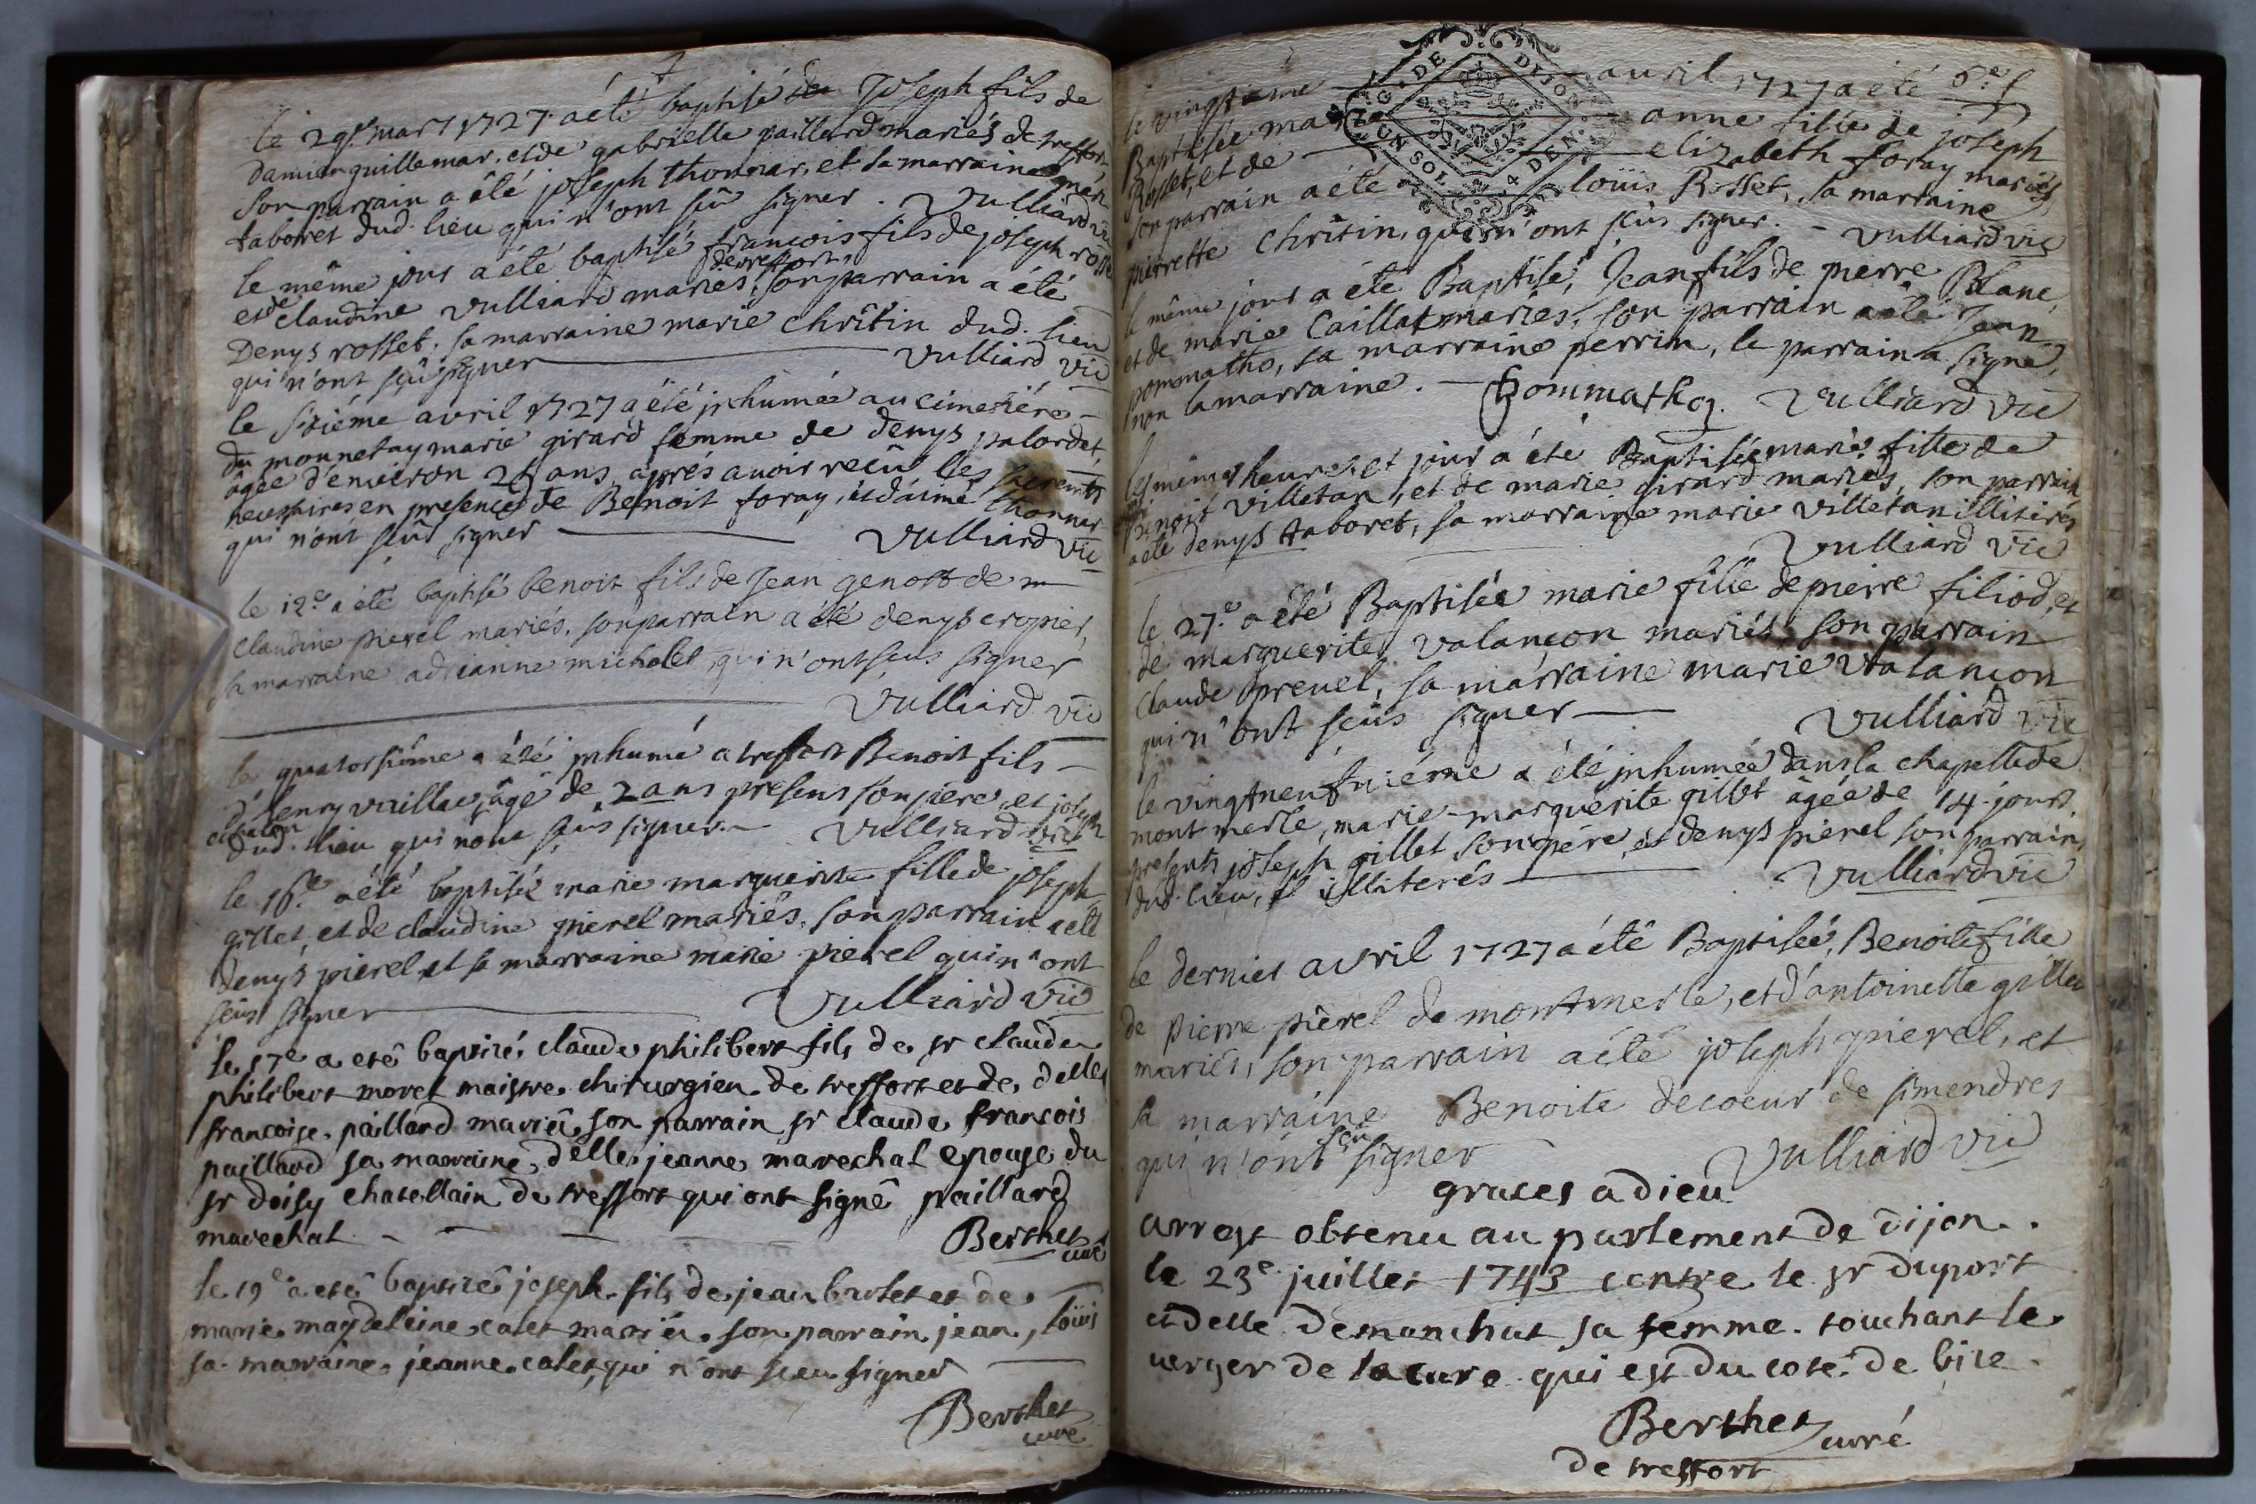 le 29e mars 1727 a été baptisé Joseph fils de
damien guillemar, et de gabrielle paillard mariés de treffort
son parrain a êté joseph thonnar, et sa marraine
taboret dud. lieu qui n'ont sçû signer. Vulliard vic
le même jour a été baptisé francois fils de joseph rosset
et de claudine Vulliard mariés, de treffort, son parrain a été
Denys rosset, sa marraine marie Chrîtin dud. lieu
qui n'ont sçû signer Vulliard Vic
le sixiéme avril 1727 a été jnhumée au cimetiére
du monnetay marie girard femme de denys palordet,
âgée d'environ 26 ans, aprés avoir reçû les sacremts
necessaires en presences de Benoit foray, et d'aimé thonnar
qui n'ont sçû signer Vulliard Vic
le 12e a été baptisé benoit fils de Jean genost de
claudine pierel mariés, son parrain a été denys cropier,
sa marraine adrianne michalet, qui n'ont sçus signer
Vulliard Vic
le quatorsiéme a été jnhumé a treffort Benoit fils
d'henry vuillac, âgé de 2 ans presens son piere, et joseph
dud. lieu qui n'ont sçus signer. Vulliard vic
le 16e a été baptisée marie marguerite fille de joseph
gillet, et de claudine pierel mariés, son parrain a été
denys pierel et sa marraine marie pierel qui n'ont
sçus signer Vulliard Vic
le 17e a eté baptisé claude philibert fils de sr claude
philibert morel maistre chirurgien de treffort et de delle
francoise paillard mariés, son parrain sr claude francois
paillard sa marraine delle jeanne marechal epouse du
sr doisy chatellain de treffort qui ont signé paillard
marechal Berthet curé
le 19e a eté baptisé joseph fils de jean brolet et de
marie magdeleine calet mariés, son parrain jean louis
sa marraine jeanne calet, qui n'ont sceu signer
Berthet
curé
G. DE DIJON
UN SOL 4 DEN
le vingtéme avril 1727 a été
Baptisée marie anne fille de joseph
Rosset, et de elizabeth foray mariés,
son parrain a été loüis Rosset, sa marraine
pierrette Chrîtin, qui n'ont sçûs signer. Vulliard vic
le même jour a été Baptisé, Jean fils de pierre Blanc,
et de marie Caillat mariés, son parrain a été Jean
pommatho, sa marraine perrin, le parrain a signé,
non la marraine. Pommathoz. Vulliard Vic
les mêmes heures et jour a été Baptisée marie fille de
Benoit Villetan, et de marie girard mariés, son parrain
a été denys taboret, sa marraine marie Villetan illiterés
Vulliard Vic
le 27.e a été Baptisée marie fille de pierre filiod, et
de marguerite Valançon mariés son parrain
claude prevel, sa marraine marie Valançon
qui n'ont sçûs signer Vulliard Vic
le vingtneufviéme a été jnhumée dans la chapelle de
montmerle, marie-marguérite gillet âgée de 14 jours,
presents joseph gillet son pére, et denys pierel son parrain,
dud. lieu, illiterés Vulliard vic
le dernier avril 1727 a été Baptisée, Benoite fille
de pierre piêrel de montmerle, et d'antoinette gillet
mariés, son parrain a été joseph pierel, et
sa marraine Benoite decoeur de simendres
qui n'ont sçû signer Vulliard Vic
graces a dieu
arrest obtenu au parlement de dijon.
le 23e juillet 1743 contre le sr duport
et delle demanchat sa femme. touchant le
verger de la cure qui est du coté de bise.
Berthet curé
de treffort